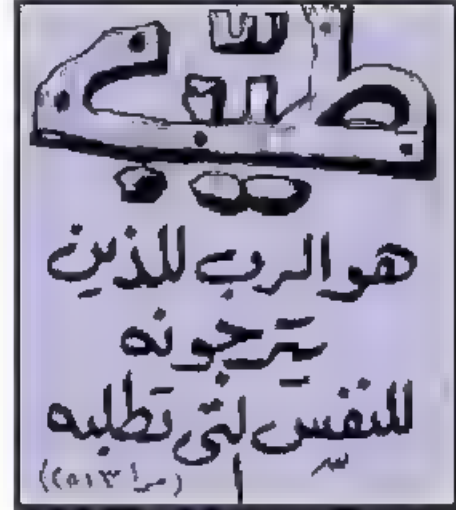 طيب
هو الرب للذين
يترجونه
للنفس التى تطلبه
(مرا ٣:٢٥)